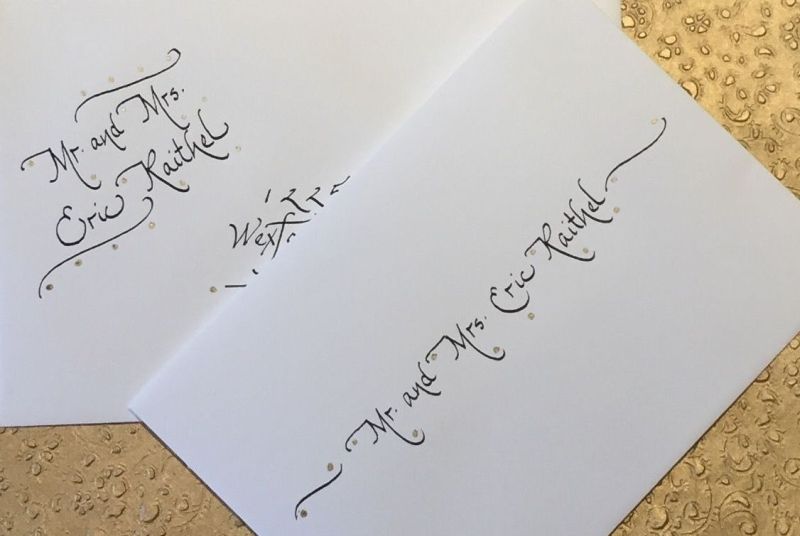 Mr. and Mrs.
Eric Raithel
Mr. and Mrs. Eric Raithel